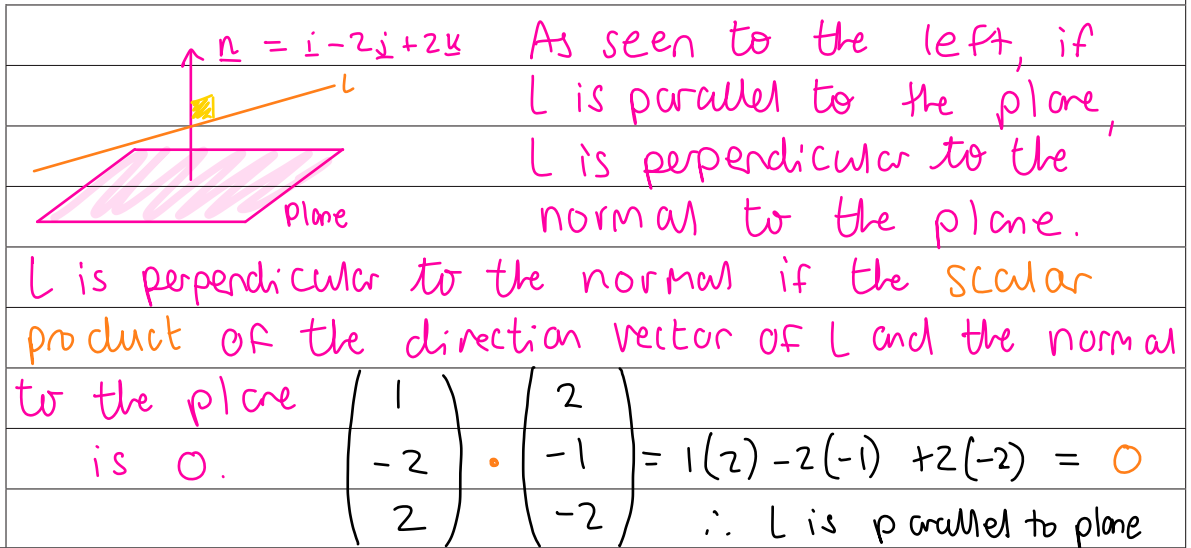 n = i - 2j + 2k
L
Plane
As seen to the left, if
L is parallel to the plane,
L is perpendicular to the
normal to the plane.
L is perpendicular to the normal if the scalar
product of the direction vector of L and the normal
to the plane
is 0.
(1 -2 2) · (2 -1 -2) = 1(2) -2(-1) +2(-2) = 0
∴ L is parallel to plane